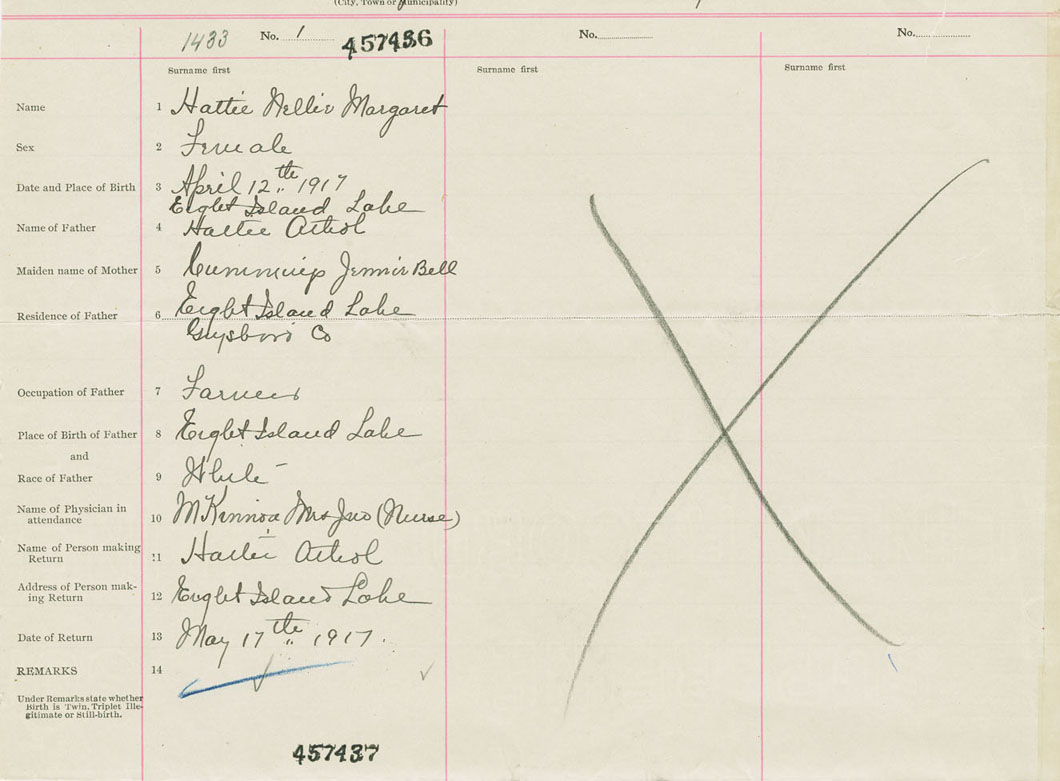 (City, Town or Municipality)
1433 No. 1 457436 No. No.
Surname first Surname first Surname first
Name 1 Hattie Nellie Margaret
Sex 2 Female
Date and Place of Birth 3 April 12th 1917
Eight Island Lake
Name of Father 4 Hattie
Maiden name of Mother 5 Cummings Jennie Bell
Residence of Father 6 Eight Island Lake
Guysboro Co
Occupation of Father 7 Farmer
Place of Birth of Father 8 Eight Island Lake
and
Race of Father 9 White
Name of Physician in
attendance 10 McKinnon Mrs Jno (Nurse)
Name of Person making
Return 11 Hattie
Address of Person mak-
ing Return 12 Eight Island Lake
Date of Return 13 May 17th 1917.
REMARKS 14
Under Remarks state whether
Birth is Twin, Triplet Ille-
gitimate or Still-birth.
457437